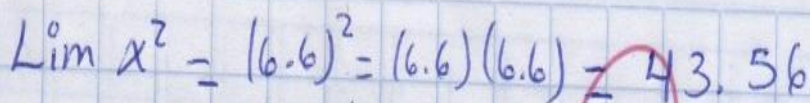 Lim x² = (6.6)² = (6.6)(6.6) = 43.56